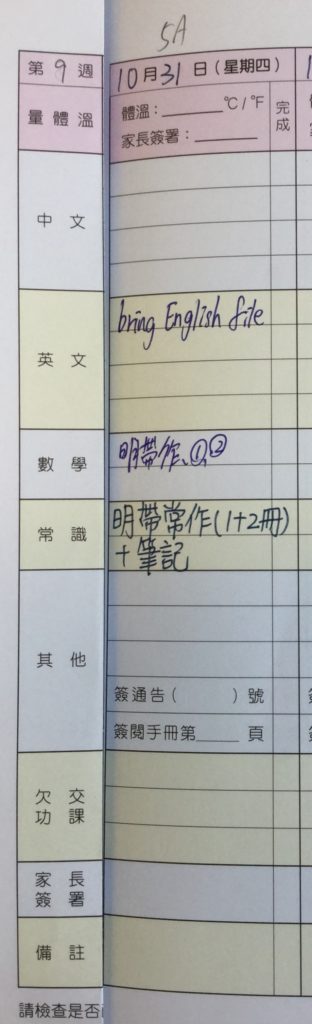 5A
第9週
10月31日(星期四)
量體溫
體溫:______℃/℉
家長簽署:______
完成
中文
英文
bring English file
數學
明帶作、①②
常識
明帶常作(1+2冊)
+筆記
其他
簽通告( )號
簽閱手冊第____頁
欠交
功課
家長
簽署
備註
請檢查是否